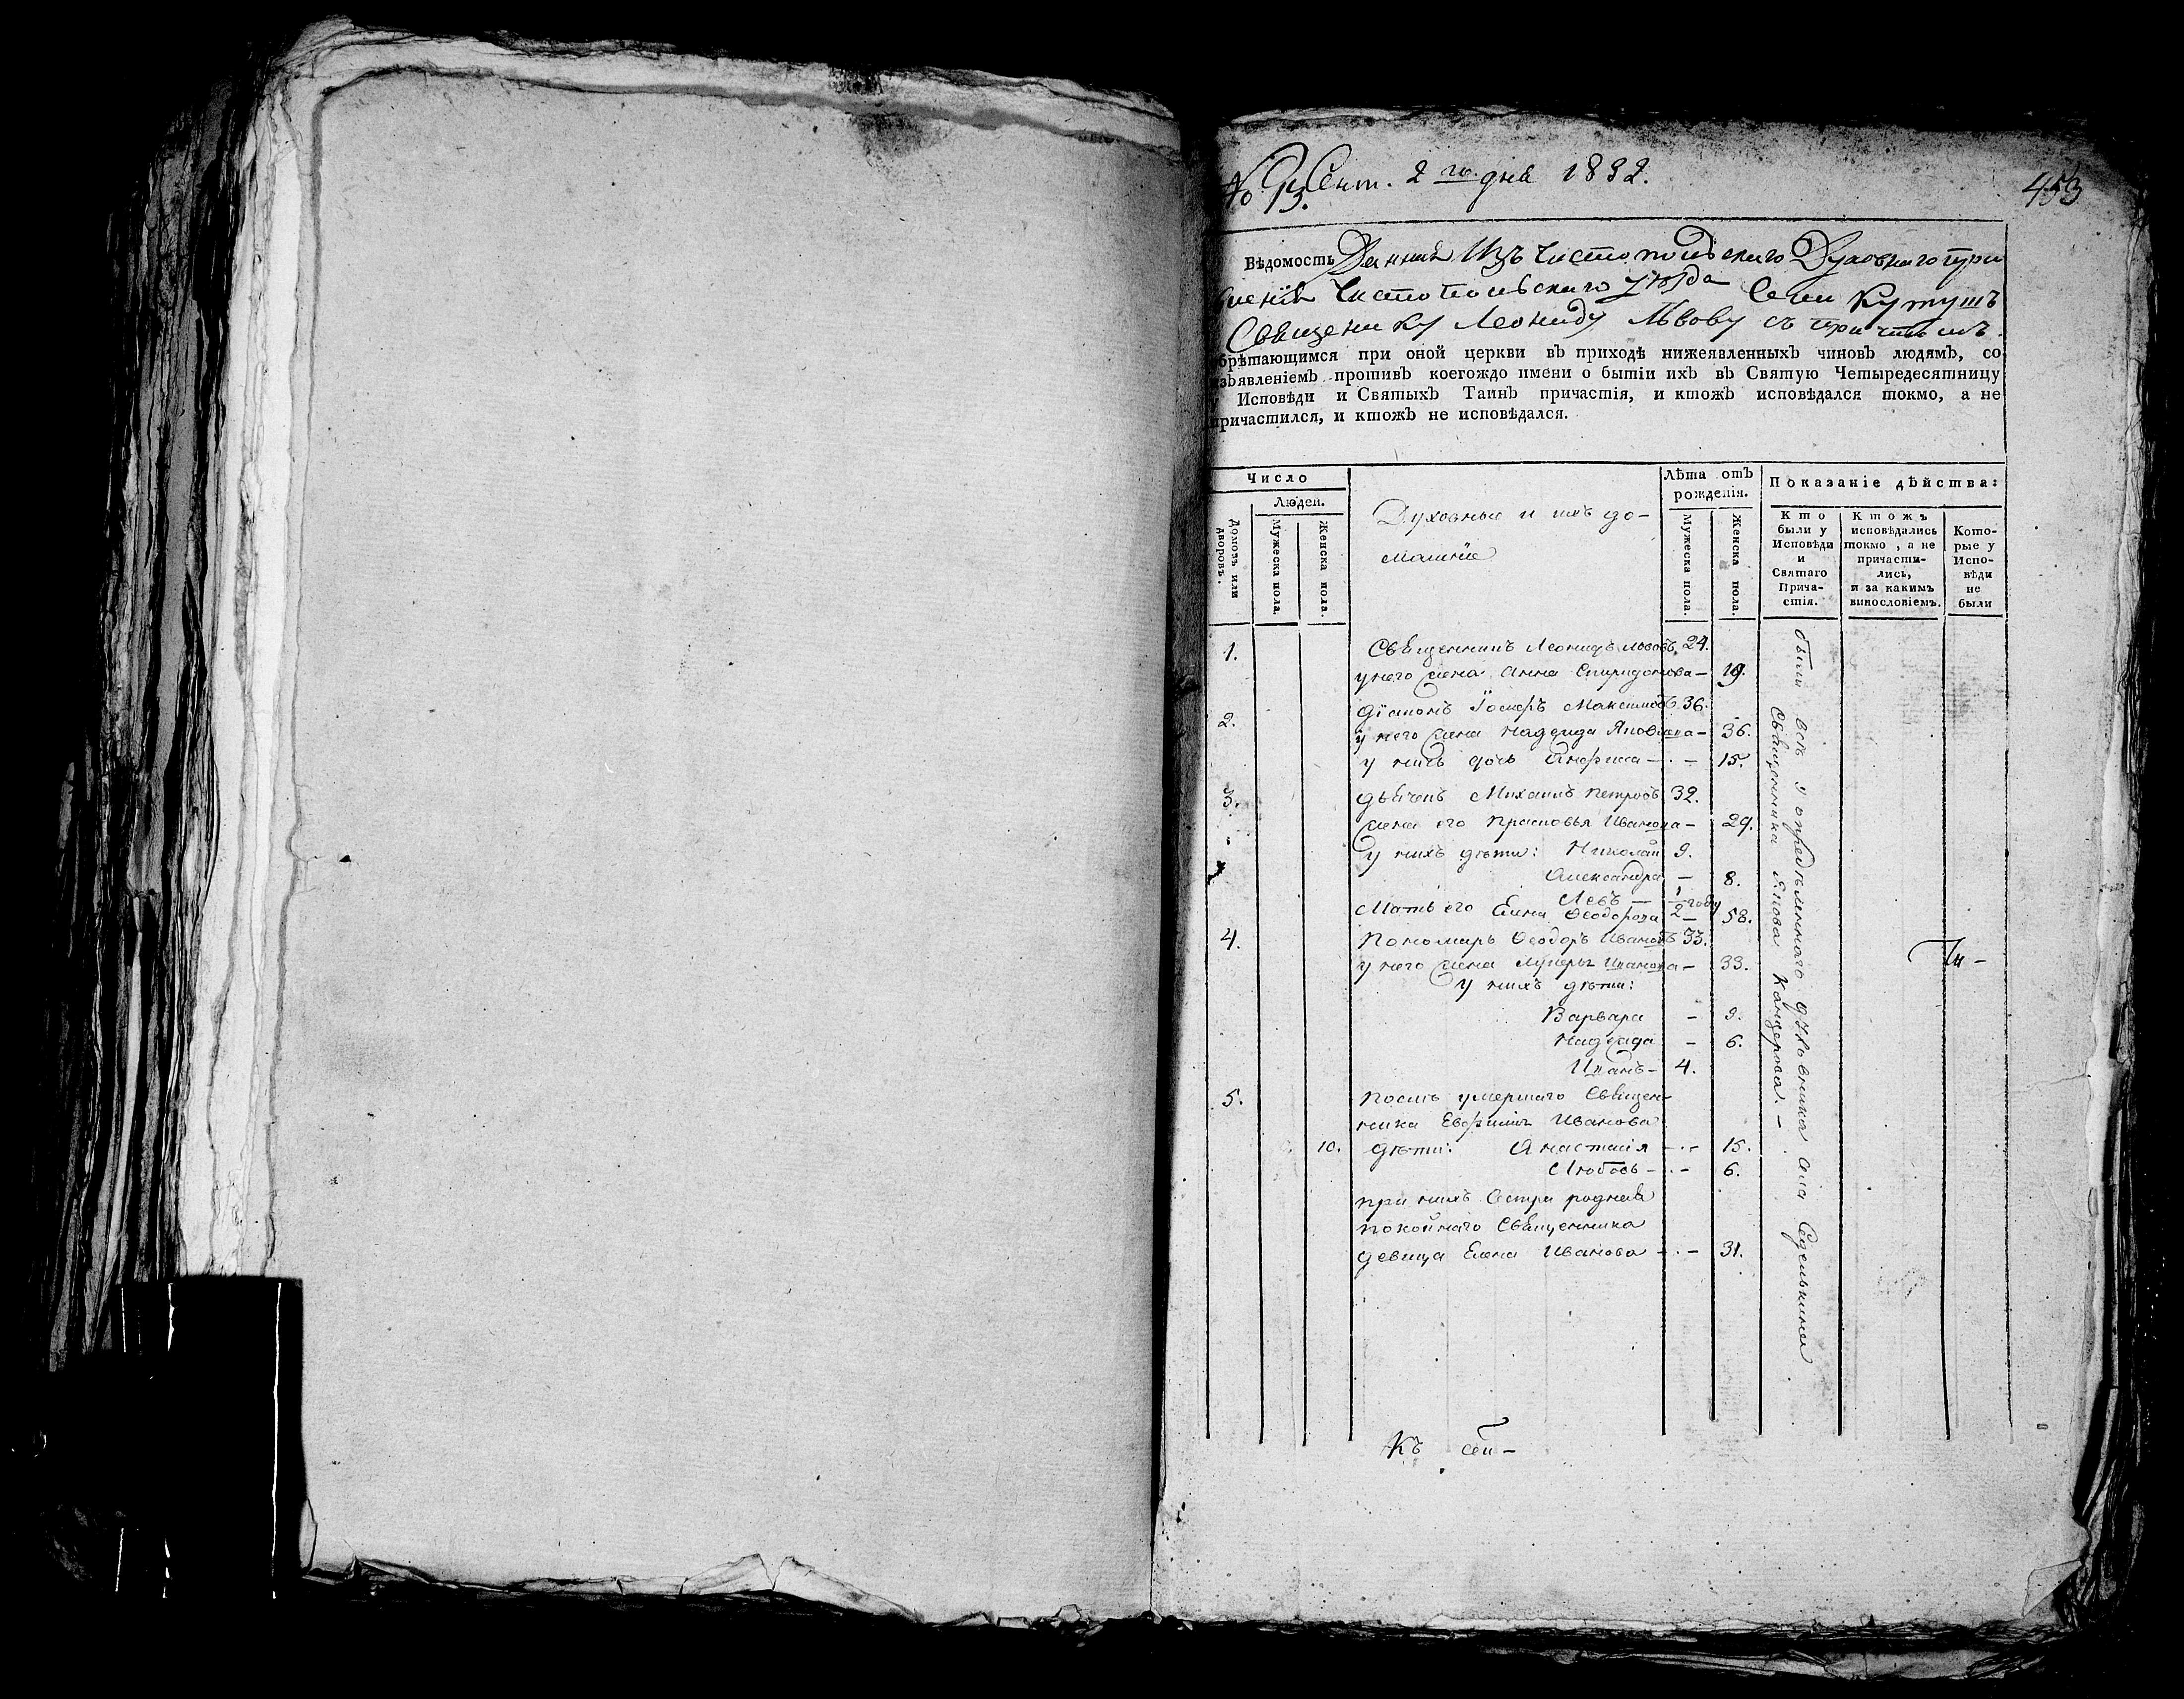 № 13. Сент. 2 го дня 1832.
453
Вѣдомость Данная Изъ Чистопольскаго Духовнаго пра
вленія Чистопольскаго уѣзда Села Кутушъ
Священику Леониду Львову съ причтомъ.
обрѣтающимся при оной церкви въ приходѣ нижеявленныхъ чиновъ людямъ, со
изъявленіемъ противъ коегождо имени о бытіи ихъ въ Святую Четыредесятницу
Исповѣди и Святыхъ Таинъ причастія, и ктожъ исповѣдался токмо, а не
причастился, и ктожъ не исповѣдался.
Число
Людей.
Домовъ или дворовъ.
Мужеска пола.
Женска пола.
Духовные и ихъ до-
машніе
Лѣта отъ
рожденія.
Мужеска пола.
Женска пола.
Показаніе дѣйства:
Кто
были у
Исповѣди
и
Святаго
Прича-
стія.
Ктожъ
исповѣдались
токмо, а не
причасти-
лись,
и за какимъ
винословіемъ.
Кото-
рые у
Испо-
вѣди
не
были
1. Священникъ Леонидъ Львовъ. 24.
у него жена Анна Спиридонова — 19.
2. Діаконъ Іосифъ Максимовъ 36.
у него жена Надежда Яковлева — 36.
у нихъ дочь Анфиса — 15.
3. Дьячекъ Михаилъ Петровъ 32.
жена его Прасковья Иванова — 29.
у нихъ дѣти: Николай 9.
Александра — 8.
Левъ — 1/2 году
Мать его Елена Феодорова — 58.
4. Пономарь Феодоръ Ивановъ 33.
у него жена Лукерья Иванова — 33.
у нихъ дѣти:
Варвара — 9.
Надежда — 6.
Иванъ — 4.
5. Послѣ умершаго Священ-
ника Евфимія Иванова
10. дѣти: Анастасія — 15.
Любовь — 6.
при нихъ Сестра родная
покойнаго Священника
девица Елена Иванова — 31.
были всѣ у опредѣленнаго духовника села Седелькина
Священника Якова Кандерова. —
Къ сей —